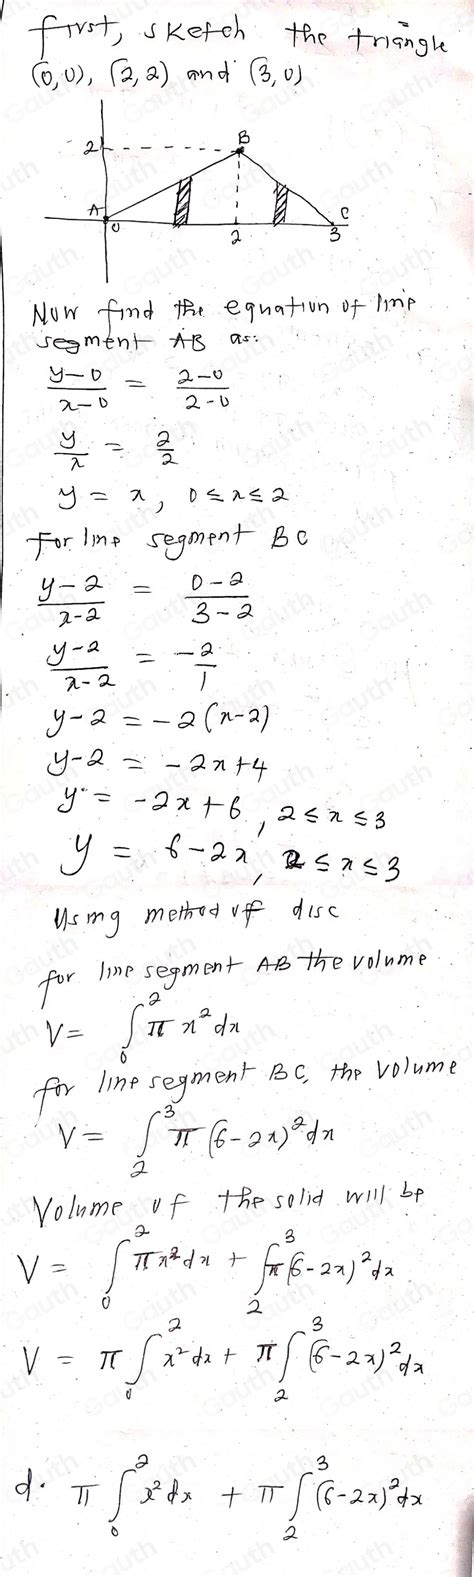 first, sketch the triangle
(0,0), (2,2) and (3,0)
2
B
A
0
2
3
C
Now find the equation of line
segment AB as:
y-0/x-0 = 2-0/2-0
y/x = 2/2
y = x, 0≤x≤2
for line segment BC
y-2/x-2 = 0-2/3-2
y-2/x-2 = -2/1
y-2 = -2(x-2)
y-2 = -2x+4
y = -2x+6, 2≤x≤3
y = 6-2x, 2≤x≤3
Using method of disc
for line segment AB the volume
V = ∫₀² πx²dx
for line segment BC, the volume
V = ∫₂³ π(6-2x)²dx
Volume of the solid will be
V = ∫₀² πx²dx + ∫₂³ π(6-2x)²dx
V = π∫₀² x²dx + π∫₂³ (6-2x)²dx
d. π∫₀² x²dx + π∫₂³ (6-2x)²dx